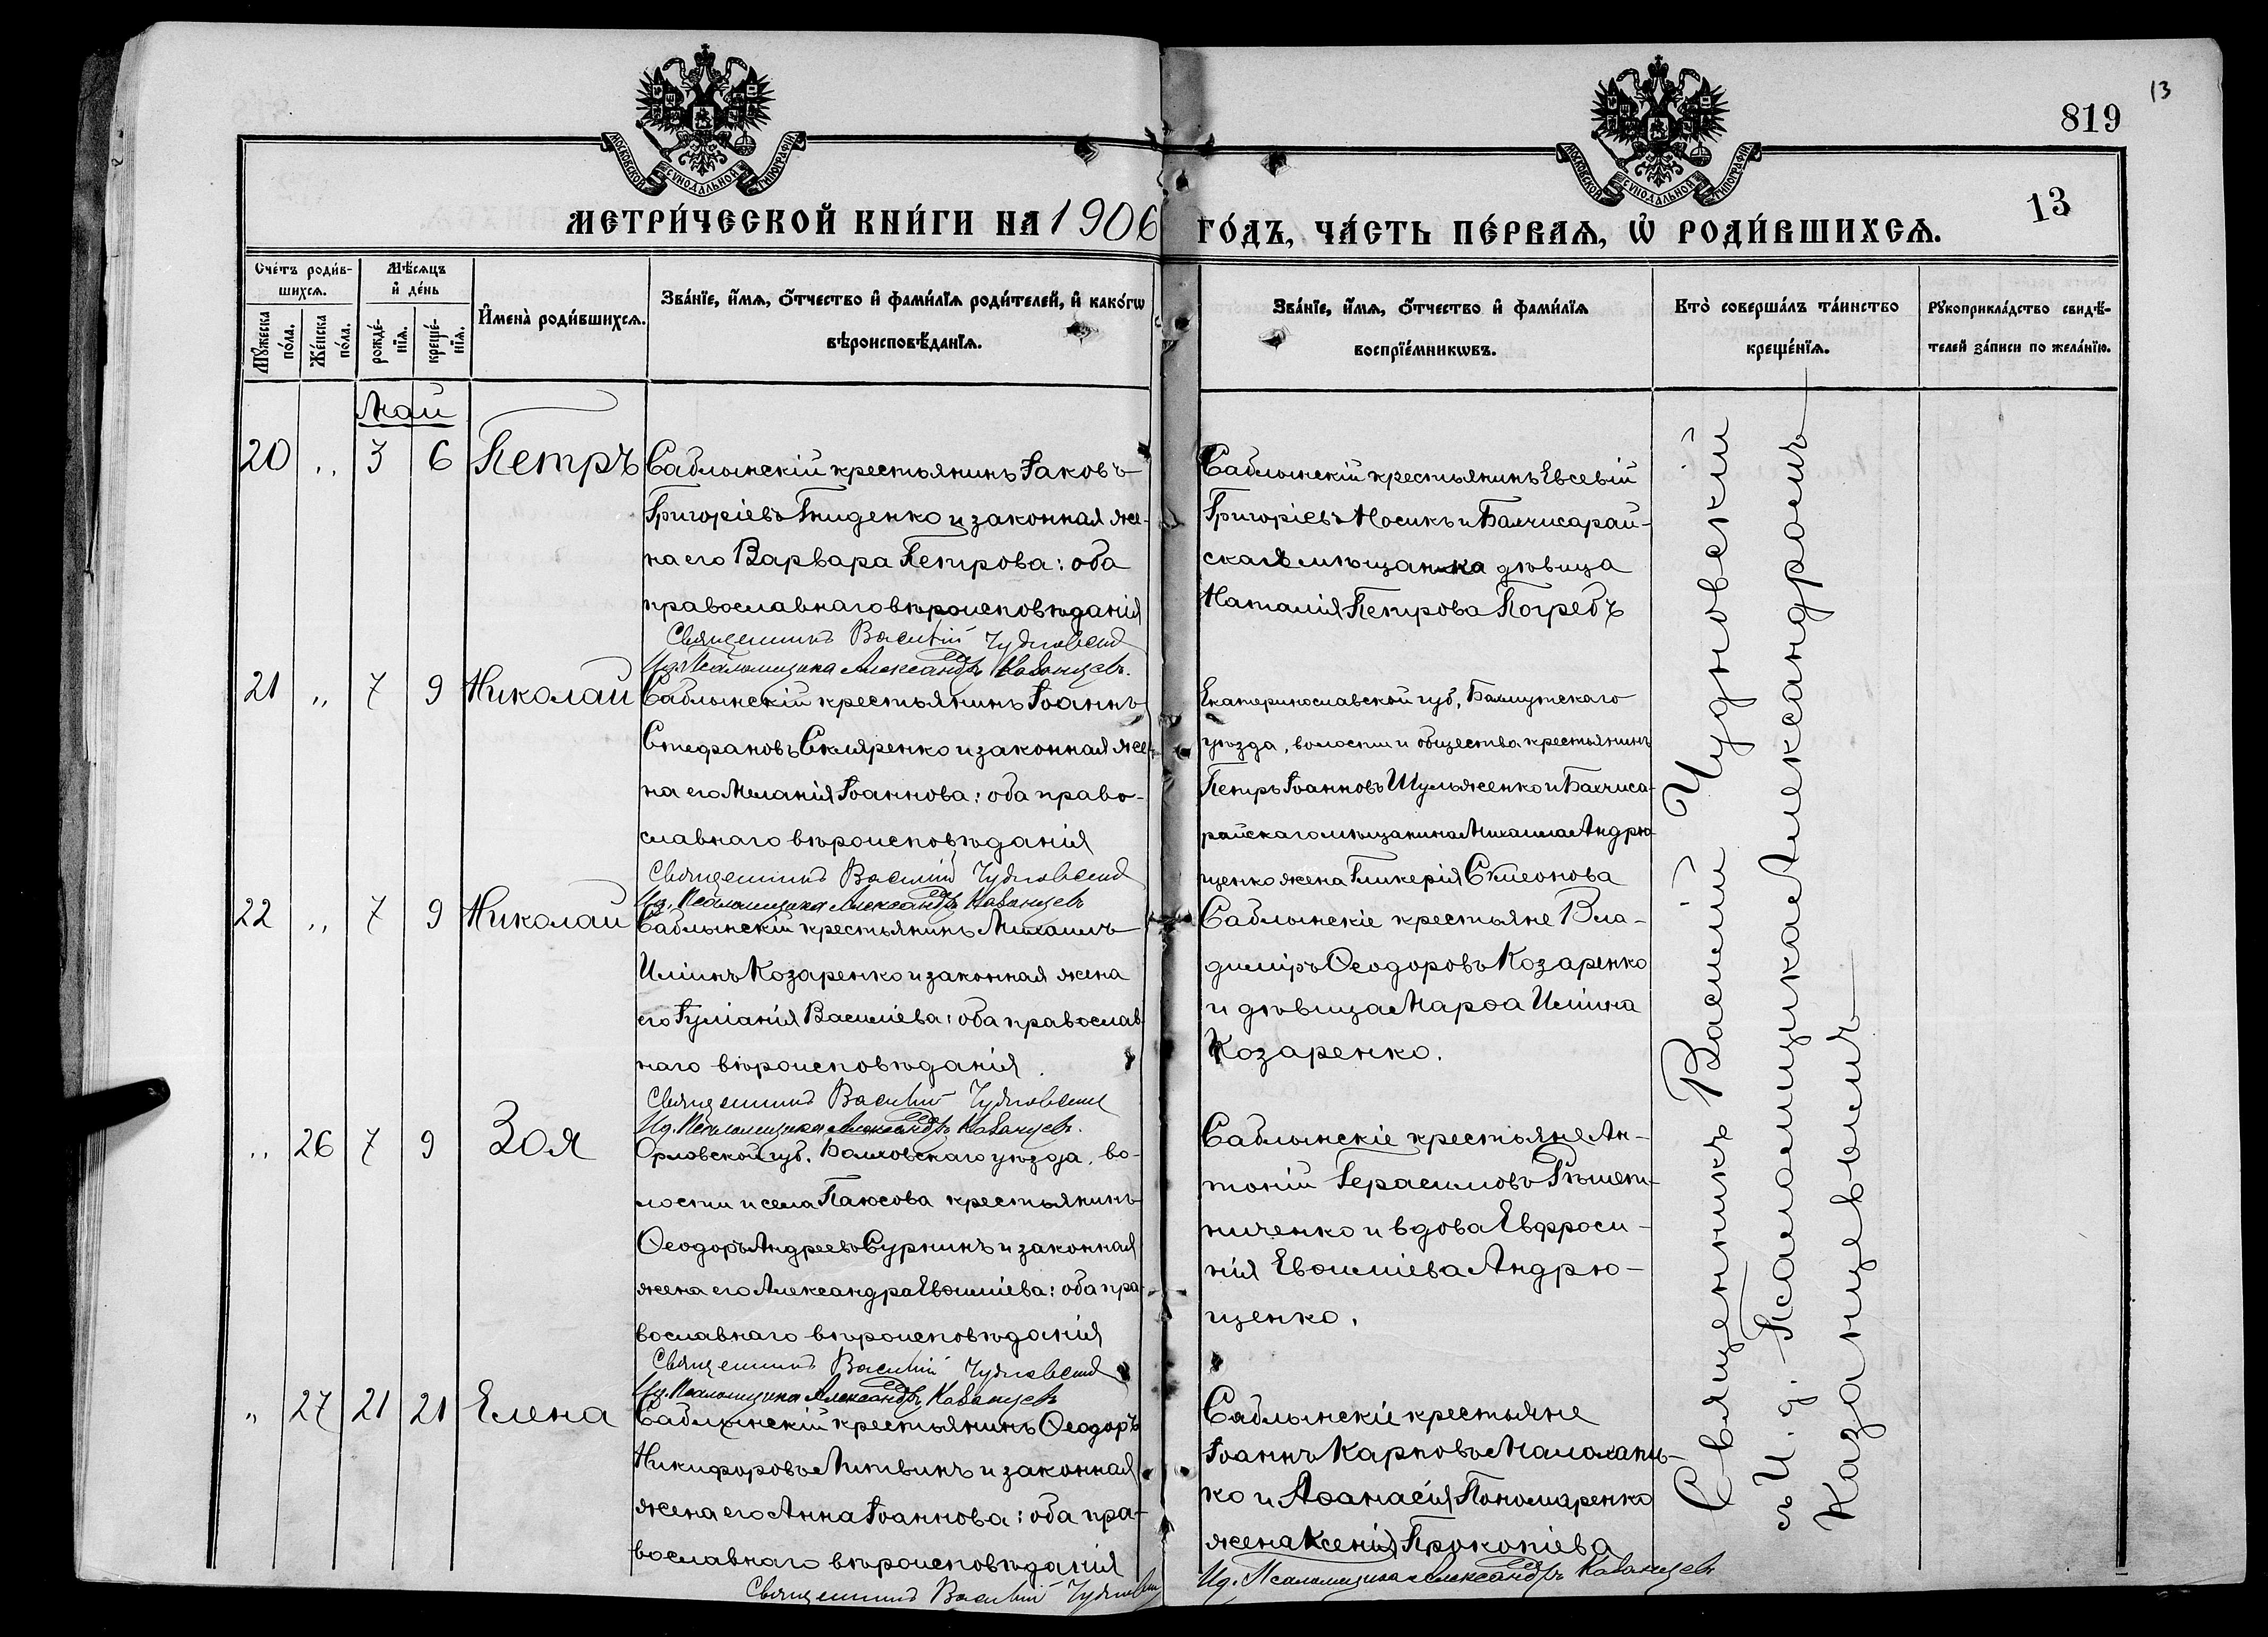 13
819
13
МОСКОВСКОЙ СѴНОДАЛЬНОЙ ТИПОГРАФІИ
МОСКОВСКОЙ СѴНОДАЛЬНОЙ ТИПОГРАФІИ
МЕТРИ́ЧЕСКОЙ КНИ́ГИ НА 1906 ГО́ДЪ, ЧА́СТЬ ПЕ́РВАѦ, Ѡ҆ РОДИ́ВШИХСѦ.
Сче́тъ роди́в-
шихсѧ.
Мꙋ́жеска по́ла.
Же́нска по́ла.
Мѣ́сѧцъ
и҆ де́нь
рожде́-
нїѧ.
креще́-
нїѧ.
И҆мена̀ роди́вшихсѧ.
Зва́нїе, и҆́мѧ, ѻ҆́тчество и҆ фами́лїѧ роди́телей, и҆ како́гѡ
вѣроисповѣ́данїѧ.
Зва́нїе, и҆́мѧ, ѻ҆́тчество и҆ фами́лїѧ
воспрїе́мникѡвъ.
Кто̀ соверша́лъ та́инство
креще́нїѧ.
Рꙋкоприкла́дство свидѣ́-
телей за́писи по жела́нїю.
Май
20 " 3 6 Петръ
Саблынскій крестьянинъ Іаковъ
Григоріевъ Гниденко и законная же-
на его Варвара Петрова: оба
православнаго вѣроисповѣданія
Священникъ Василій Чудновскій
И.д. Псаломщика Александръ Казанцевъ.
Саблынскій крестьянинъ Евсевій
Григоріевъ Носикъ и Бахчисарай-
ская мѣщанка дѣвица
Наталія Петрова Погребъ
21 " 7 9 Николай
Саблынскій крестьянинъ Іоаннъ
Стефановъ Скляренко и законная же-
на его Меланія Іоаннова: оба право-
славнаго вѣроисповѣданія
Священникъ Василій Чудновскій
И.д. Псаломщика Александръ Казанцевъ
Екатеринославской губ. Бахмутскаго
уѣзда, волости и общества крестьянинъ
Петръ Іоанновъ Шульженко и Бахчиса-
райскаго мѣщанина Михаила Андрю-
щенко жена Гликерія Симеонова
22 " 7 9 Николай
Саблынскій крестьянинъ Михаилъ
Иліинъ Козаренко и законная жена
его Іуліанія Василіева: оба православ-
наго вѣроисповѣданія.
Священникъ Василій Чудновскій
И.д. Псаломщика Александръ Казанцевъ.
Саблынскіе крестьяне Вла-
диміръ Ѳеодоровъ Козаренко
и дѣвица Марѳа Иліина
Козаренко.
" 26 7 9 Зоя
Орловской губ. Болховскаго уѣзда, во-
лости и села Паюсова крестьянинъ
Ѳеодоръ Андреевъ Сурнинъ и законная
жена его Александра Евѳиміева: оба пра-
вославнаго вѣроисповѣданія
Священникъ Василій Чудновскій
И.д. Псаломщика Александръ Казанцевъ
Саблынскіе крестьяне Ан-
тоній Герасимовъ Рѣшет-
ниченко и вдова Евфроси-
нія Евѳиміева Андрю-
щенко.
" 27 21 21 Елена
Саблынскій крестьянинъ Ѳеодоръ
Никифоровъ Литвинъ и законная
жена его Анна Іоаннова: оба пра-
вославнаго вѣроисповѣданія
Священникъ Василій Чудновскій
Саблынскіе крестьяне
Іоаннъ Карповъ Малохать-
ко и Аѳанасія Пономаренко
жена Ксенія Прокопіева
И.д. Псаломщика Александръ Казанцевъ
Священникъ Василій Чудновскій
съ И.д. Псаломщика Александромъ
Казанцевымъ